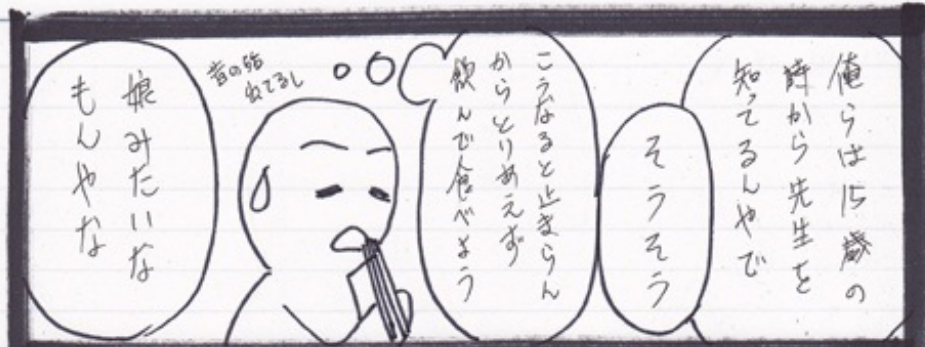 俺らは15歳の
時から先生を
知ってるんやで
そうそう
こうなると止まらん
からとりあえず
飲んで食べよう
昔の話
出てるし
娘みたいな
もんやな